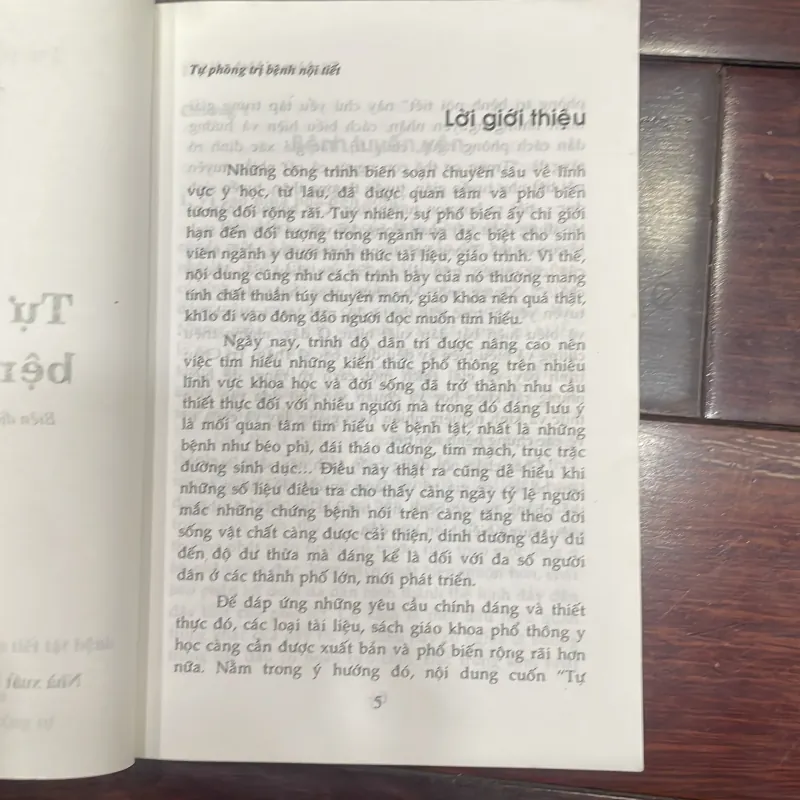 Tự phòng trị bệnh nội tiết
Lời giới thiệu
Những công trình biên soạn chuyên sâu về lĩnh
vực y học, từ lâu, đã được quan tâm và phổ biến
tương đối rộng rãi. Tuy nhiên, sự phổ biến ấy chỉ giới
hạn đến đối tượng trong ngành và đặc biệt cho sinh
viên ngành y dưới hình thức tài liệu, giáo trình. Vì thế,
nội dung cũng như cách trình bày của nó thường mang
tính chất thuần túy chuyên môn, giáo khoa nên quả thật,
kh1o đi vào đông đảo người đọc muốn tìm hiểu.
Ngày nay, trình độ dân trí được nâng cao nên
việc tìm hiểu những kiến thức phổ thông trên nhiều
lĩnh vực khoa học và đời sống đã trở thành nhu cầu
thiết thực đối với nhiều người mà trong đó đáng lưu ý
là mối quan tâm tìm hiểu về bệnh tật, nhất là những
bệnh như béo phì, đái tháo đường, tim mạch, trục trặc
đường sinh dục... Điều này thật ra cũng dễ hiểu khi
những số liệu điều tra cho thấy càng ngày tỷ lệ người
mắc những chứng bệnh nói trên càng tăng theo đời
sống vật chất càng được cải thiện, dinh dưỡng đầy đủ
đến độ dư thừa mà đáng kể là đối với đa số người
dân ở các thành phố lớn, mới phát triển.
Để đáp ứng những yêu cầu chính đáng và thiết
thực đó, các loại tài liệu, sách giáo khoa phổ thông y
học càng cần được xuất bản và phổ biến rộng rãi hơn
nữa. Nằm trong ý hướng đó, nội dung cuốn "Tự
5